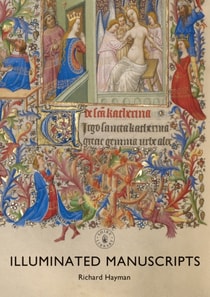 De sca katherina
Virgo sancta katherina
grecie gemma urbe alex
ILLUMINATED MANUSCRIPTS
Richard Hayman